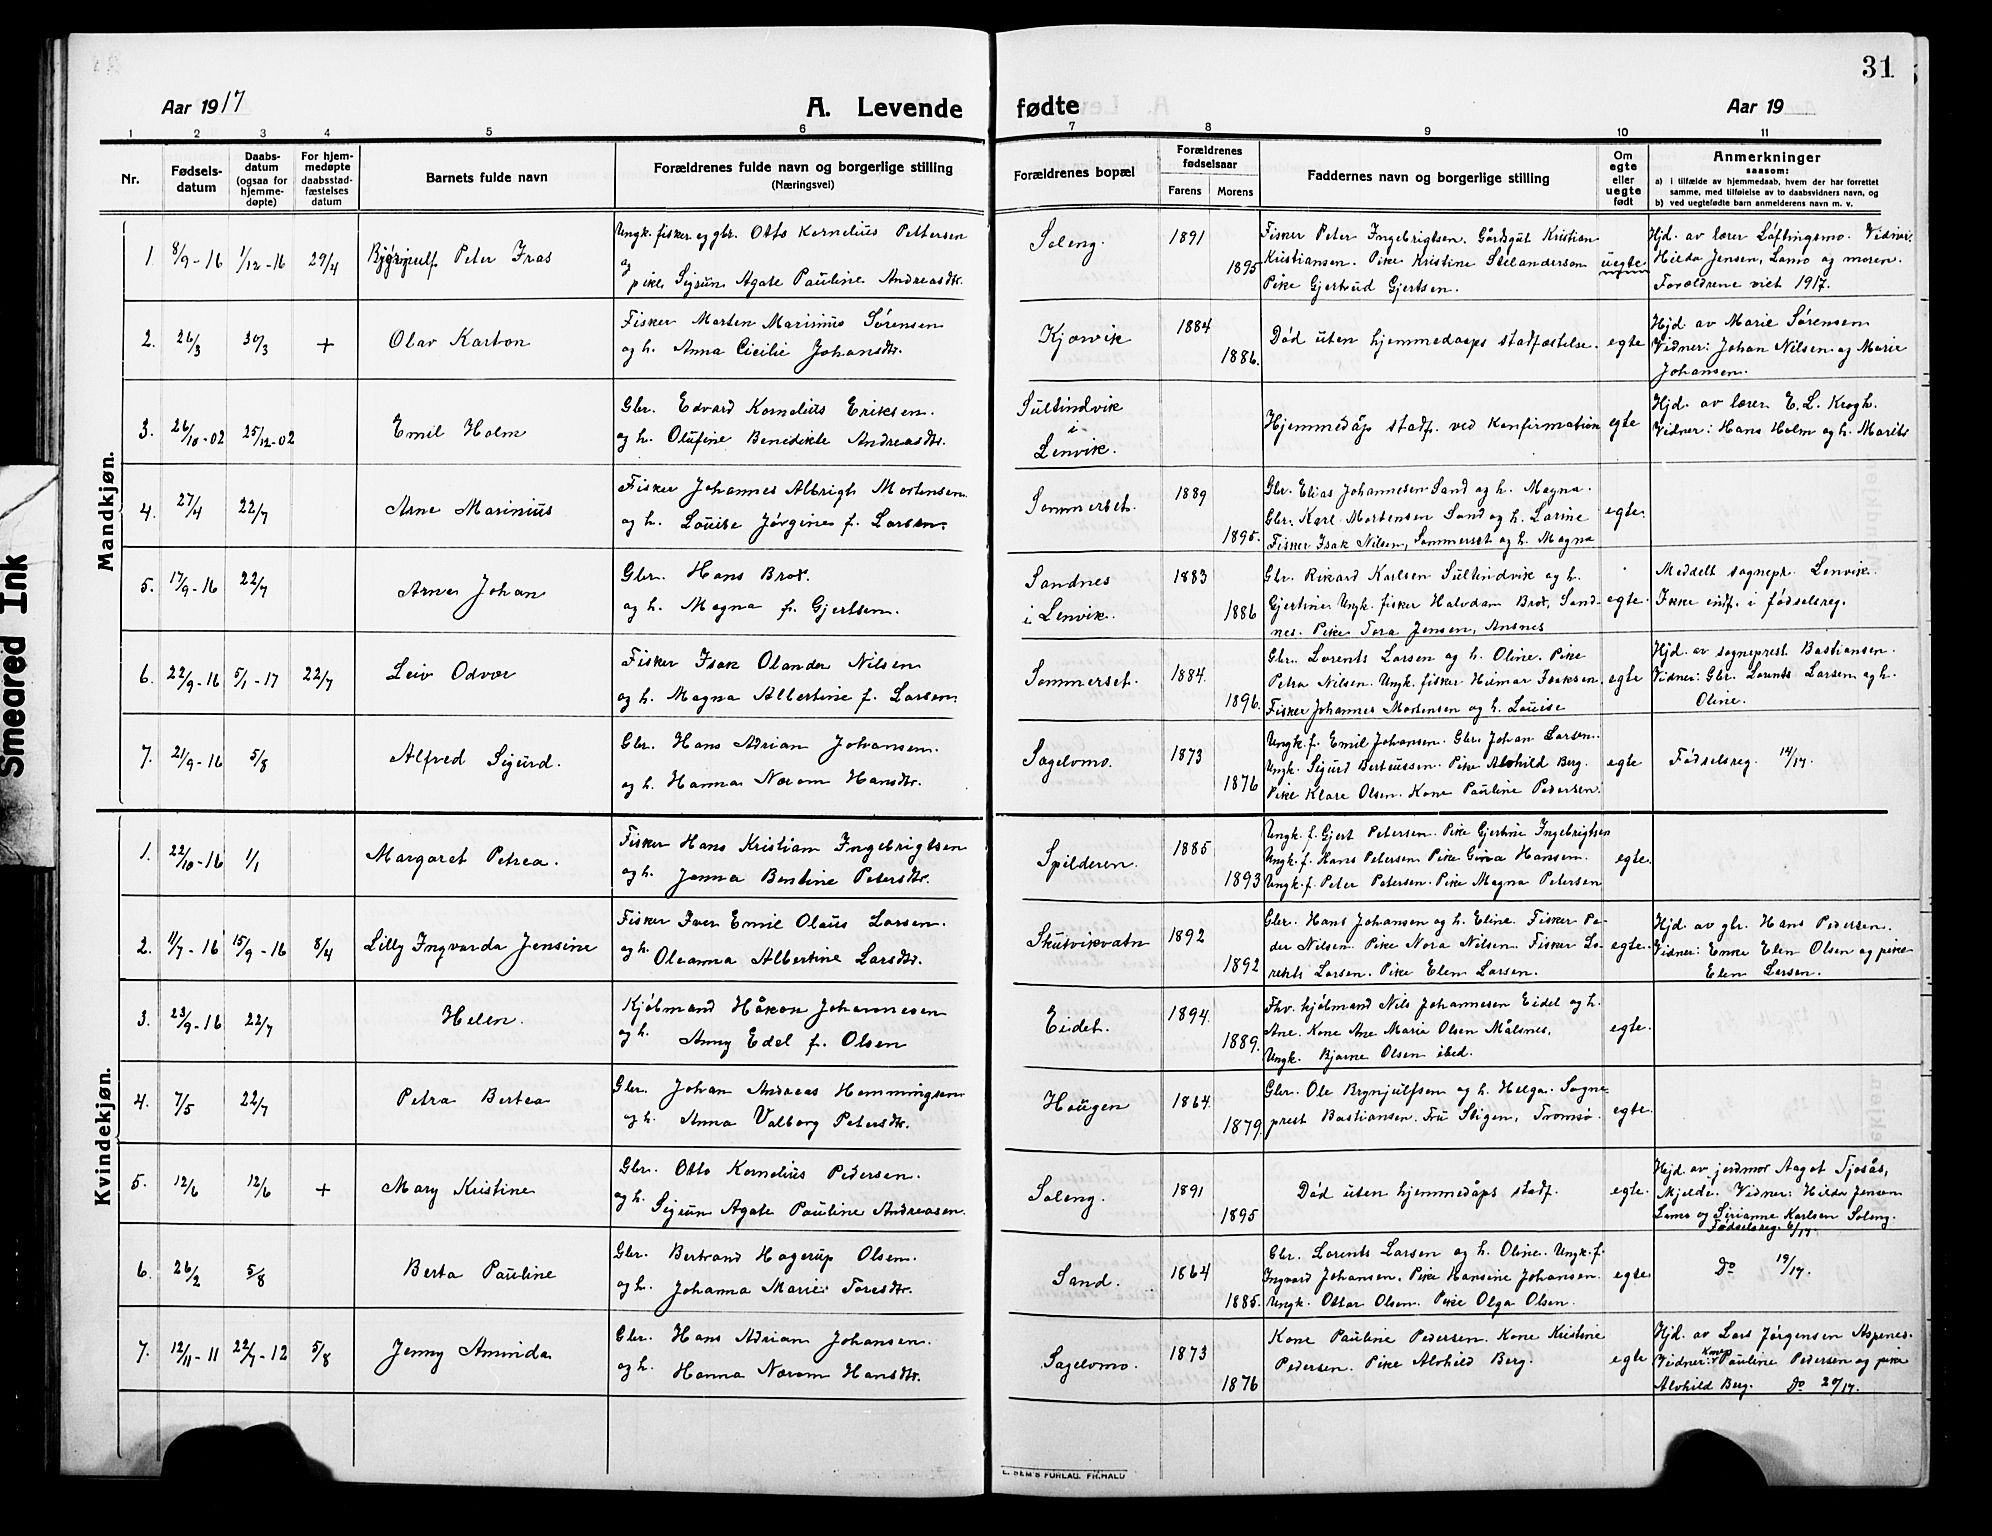 31
Aar 1917
A. Levende fødte
Aar 19
1 2 3 4 5 6 7 8 9 10 11
Nr.
Fødsels-
datum
Daabs-
datum
(ogsaa for
hjemme-
døpte)
For hjem-
medøpte
daabsstad-
fæstelses
datum
Barnets fulde navn
Forældrenes fulde navn og borgerlige stilling
(Næringsvei)
Forældrenes bopæl
Forældrenes
fødselsaar
Farens Morens
Faddernes navn og borgerlige stilling
Om
egte
eller
uegte
født
Anmerkninger
saasom:
a) i tilfælde av hjemmedaab, hvem der har forrettet
samme, med tilføielse av to daabsvidners navn, og
b) ved uegtefødte barn anmelderens navn m. v.
Mandkjøn.
1. 8/9-16 1/12-16 29/4 Peter
Ungk. fisker og gbr. Otto Kornelius Pettersen
og
pike Sigrun Agate Pauline Andreasdtr.
Soleng. 1891 1895
Fisker Peter Ingebrigtsen. Gårdsgut Kristian
Kristiansen. Pike Kristine
Pike Gjertrud Gjertsen.
uegte
Hjd. av lærer Løftingsmo. Vidner:
Hilda Jensen, Lamo og moren.
Forældrene viet 1917.
2. 26/3 30/3 + Olav Karton
Fisker Morten Marinius Sørensen
og h. Anna Cicilie Johansdtr.
Kjønvik 1884 1886.
Død uten hjemmedaaps stadfæstelse.
egte
Hjd. av Marie Sørensen
Vidner: Johan Nilsen og Marie
Johansen.
3. 26/10-02 25/12-02 Emil Holm
Gbr. Edvard Kornelius Eriksen.
og h. Olufine Benedikte Andreasdtr.
Sultindvik
i
Lenvik.
Hjemmedåp stadf. ved konfirmation
egte
Hjd. av lærer E. L. Krogh.
Vidner: Hans Holm og h. Marits
4. 27/4 22/7 Arne Marinius
Fisker Johannes Albrigh Mortensen
og h. Louise Jørgine f. Larsen.
Sommerset. 1889 1895.
Gbr. Elias Johannesen Sand og h. Magna.
Gbr. Karl Mortensen Sand og h. Larine
Fisker Isak Nilsen, Sommerset og h. Magna
egte.
5. 17/9-16 22/7 Arne Johan
Gbr. Hans Brox.
og h. Magna f. Gjertsen.
Sandnes
i Lenvik. 1883 1886
Gbr. Rikard Karlsen Sultindvik og h.
Gjertine. Ungk. fisker Halvdan Brox, Sand-
nes. Pike Tora Jensen, Ansnes
egte.
Meddelt sognepr. Lenvik.
Ikke indf. i fødselsreg.
6. 22/9-16 5/1-17 22/7 Leiv Odvar
Fisker Isak Olander Nilsen
og h. Magna Albertine f. Larsen.
Sommerset. 1884. 1896.
Gbr. Lorents Larsen og h. Oline. Pike
Petra Nilsen. Ungk. fisker Hilmar Isaksen.
Fisker Johannes Mortensen og h. Louise
egte
Hjd. av sogneprest Bastiansen.
Vidner: Gbr. Lorents Larsen og h.
Oline.
7. 21/9-16 5/8 Alfred Sigurd.
Gbr. Hans Adrian Johansen.
og h. Hanna Nærom Hansdtr.
Sagelvmo. 1873 1876
Ungk. f. Emil Johansen. Gbr. Johan Larsen.
Ungk. Sigurd Berteussen. Pike Alvhild Berg.
Pike Klare Olsen. Kone Pauline Pedersen.
egte
Fødselsreg. 14/17.
Kvindekjøn.
1. 22/10-16 1/1 Margaret Petrea.
Fisker Hans Kristian Ingebrigtsen
og h. Jenna Bentine Petersdtr.
Spilderen. 1885 1893
Ungk. f. Gjert Petersen. Pike Gjertine Ingebrigtsen
Ungk. f. Hans Petersen. Pike Hansen.
Ungk. f. Peter Petersen. Pike Magna Petersen
egte.
2. 11/7-16 15/9-16 8/4 Lilly Ingvarda Jensine
Fisker Iver Emil Olaus Larsen.
og h. Oleanna Albertine Larsdtr.
Skutvikvatn 1892 1892
Gbr. Hans Johansen og h. Eline. Fisker Pe-
der Nilsen. Pike Nora Nilsen. Fisker Lo-
rents Larsen. Pike Elen Larsen.
egte.
Hjd. av gbr. Hans Pedersen.
Vidner: Enke Elen Olsen og pike
Elen Larsen.
3. 23/9-16 22/7 Helen.
Kjøbmand Håkon Johannesen
og h. Anny Edel f. Olsen
Eidet. 1894. 1889.
Fhv. kjøbmand Nils Johannesen Eidet og h.
Ane. Kone Ane Marie Olsen Målsnes,
Ungk. Bjarne Olsen ibed.
egte.
4. 7/5 22/7 Petra Bertea
Gbr. Johan Andreas Hemmingsen
og h. Anna Valborg Petersdtr.
Haugen 1864. 1879.
Gbr. Ole Brynjulfsen og h. Helga. Sogne-
prest Bastiansen. Fru Stigen, Tromsø.
egte.
5. 12/6 12/6 + Mary Kristine
Gbr. Otto Kornelius Pedersen.
og h. Sigrun Agate Pauline Andreasen.
Soleng. 1891 1895
Død uten hjemmedåps stadf.
egte.
Hjd. av jordmor Aagot Tjosås,
Mjelde. Vidner: Hilda Jensen
Lamo og Sirianne Karlsen Soleng.
Fødselsreg. 6/17.
6. 26/2 5/8 Berta Pauline
Gbr. Bertrand Hagerup Olsen.
og h. Johanna Marie Toresdtr.
Sand. 1864 1885.
Gbr. Lorents Larsen og h. Oline. Ungk. f.
Ingvard Johansen. Pike Hansine Johansen.
Ungk. Ottar Olsen. Pike Olga Olsen.
egte.
Do 19/17.
7. 12/11-11 22/7-12 5/8 Jenny Aminda
Gbr. Hans Adrian Johansen.
og h. Hanna Nærom Hansdtr.
Sagelvmo. 1873 1876
Kone Pauline Pedersen. Kone Kristine
Pedersen. Pike Alvhild Berg.
egte
Hjd. av Lars Jørgensen Aspenes.
Vidner: Kone Pauline Pedersen og pike
Alvhild Berg. Do 20/17.
E. SEM'S FORLAG. FR.HALD
Smeared Ink